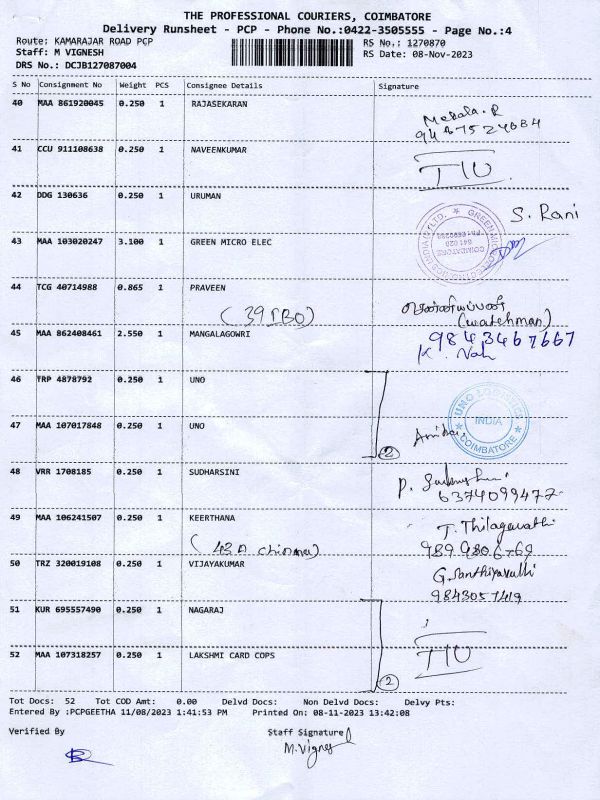 THE PROFESSIONAL COURIERS, COIMBATORE
Delivery Runsheet - PCP - Phone No.:0422-3505555 - Page No.:4
Route: KAMARAJAR ROAD PCP
RS No.: 1270870
Staff: M VIGNESH
RS Date: 08-Nov-2023
DRS No.: DCJB127087004
S No Consignment No Weight PCS Consignee Details Signature
40 MAA 861920045 0.250 1 RAJASEKARAN
Mekala.R
41 CCU 911108638 0.250 1 NAVEENKUMAR
42 DDG 130636 0.250 1 URUMAN
S. Rani
43 MAA 103020247 3.100 1 GREEN MICRO ELEC
COIMBATORE
641 020
44 TCG 40714988 0.865 1 PRAVEEN
(watchman)
45 MAA 862408461 2.550 1 MANGALAGOWRI
9843467667
46 TRP 4878792 0.250 1 UNO
UNO LOGISTICS
INDIA
COIMBATORE
47 MAA 107017848 0.250 1 UNO
2
48 VRR 1708185 0.250 1 SUDHARSINI
6374099477
49 MAA 106241507 0.250 1 KEERTHANA
T. Thilagavathi
50 TRZ 320019108 0.250 1 VIJAYAKUMAR
9843057419
51 KUR 695557490 0.250 1 NAGARAJ
52 MAA 107318257 0.250 1 LAKSHMI CARD COPS
2
Tot Docs: 52 Tot COD Amt: 0.00 Delvd Docs: Non Delvd Docs: Delvy Pts:
Entered By :PCPGEETHA 11/08/2023 1:41:53 PM Printed On: 08-11-2023 13:42:08
Verified By
Staff Signature
M.Vignesh